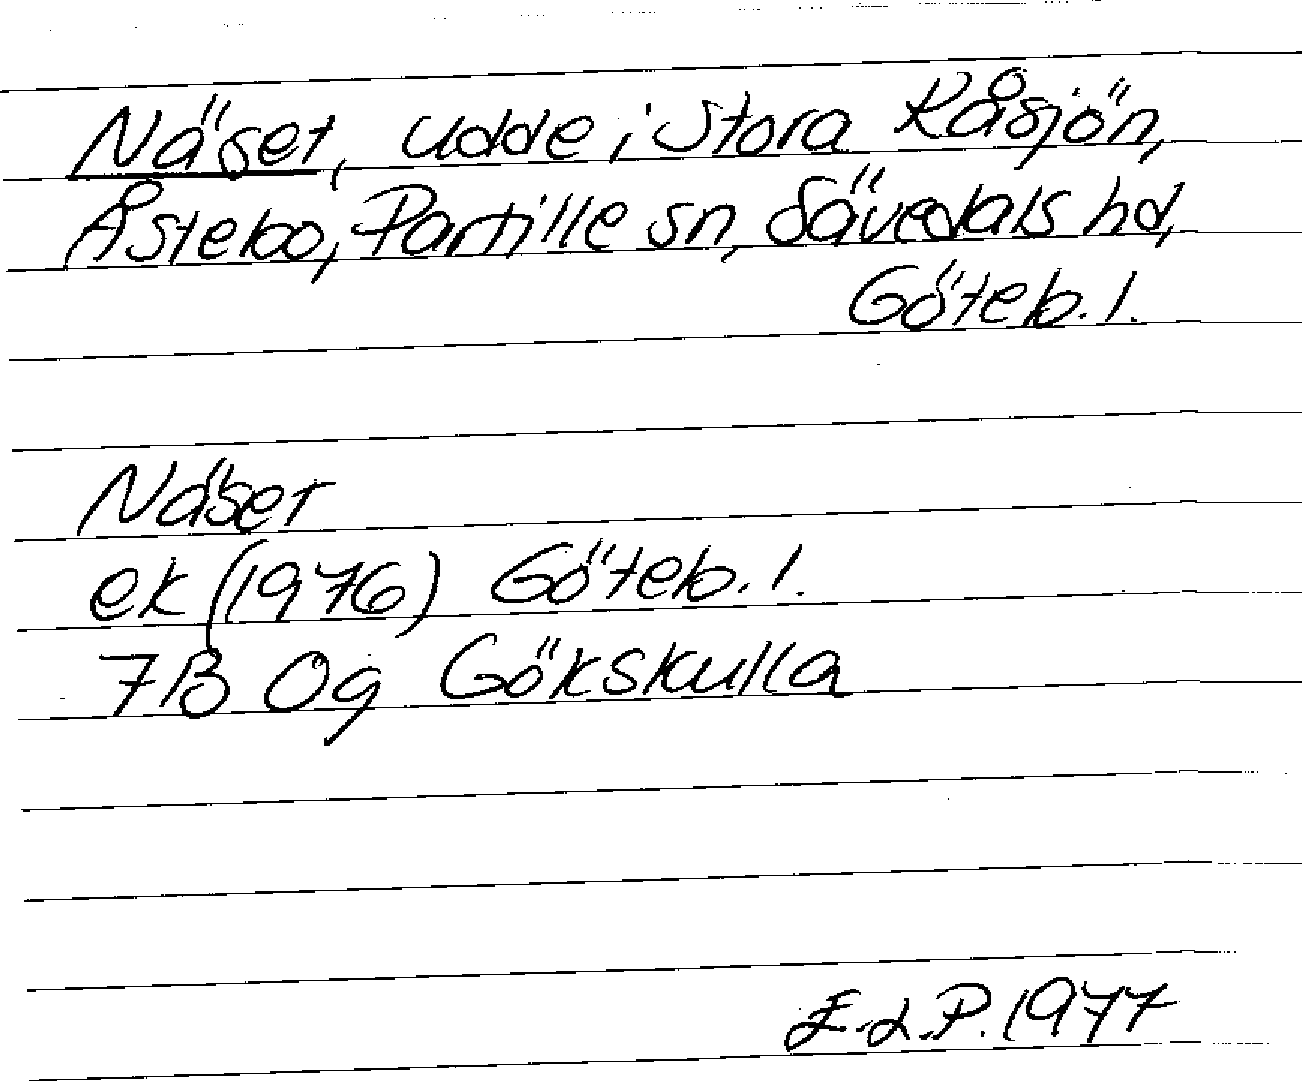 Näset, udde i Stora Kåsjön,
Åstebo, Partille sn, Sävedals hd,
Göteb. l.
Näset
ek (1976) Göteb. l.
7B 0g Gökskulla
E.L.P. 1977